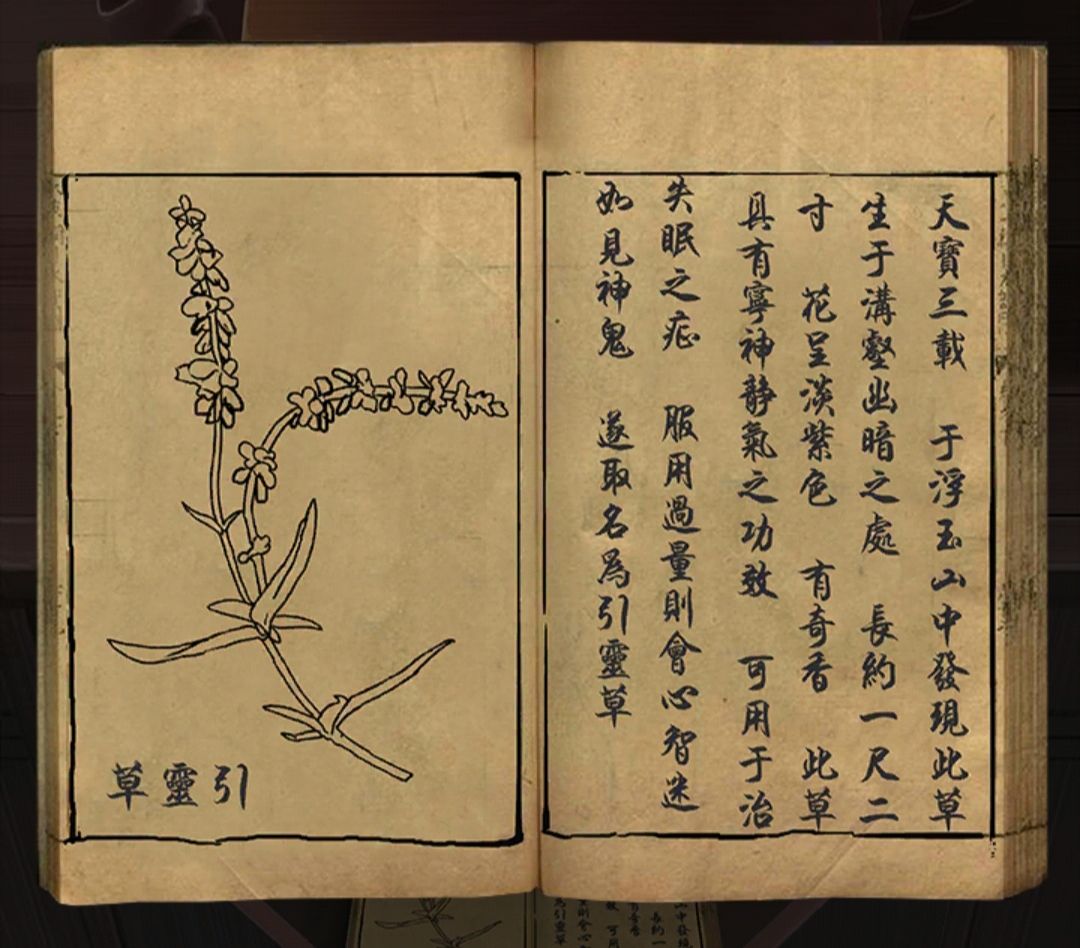 天寶三載 于浮玉山中發現此草
生于溝壑幽暗之處 長約一尺二
寸 花呈淡紫色 有奇香 此草
具有寧神靜氣之功效 可用于治
失眠之症 服用過量則會心智迷
如見神鬼 遂取名爲引靈草
引靈草